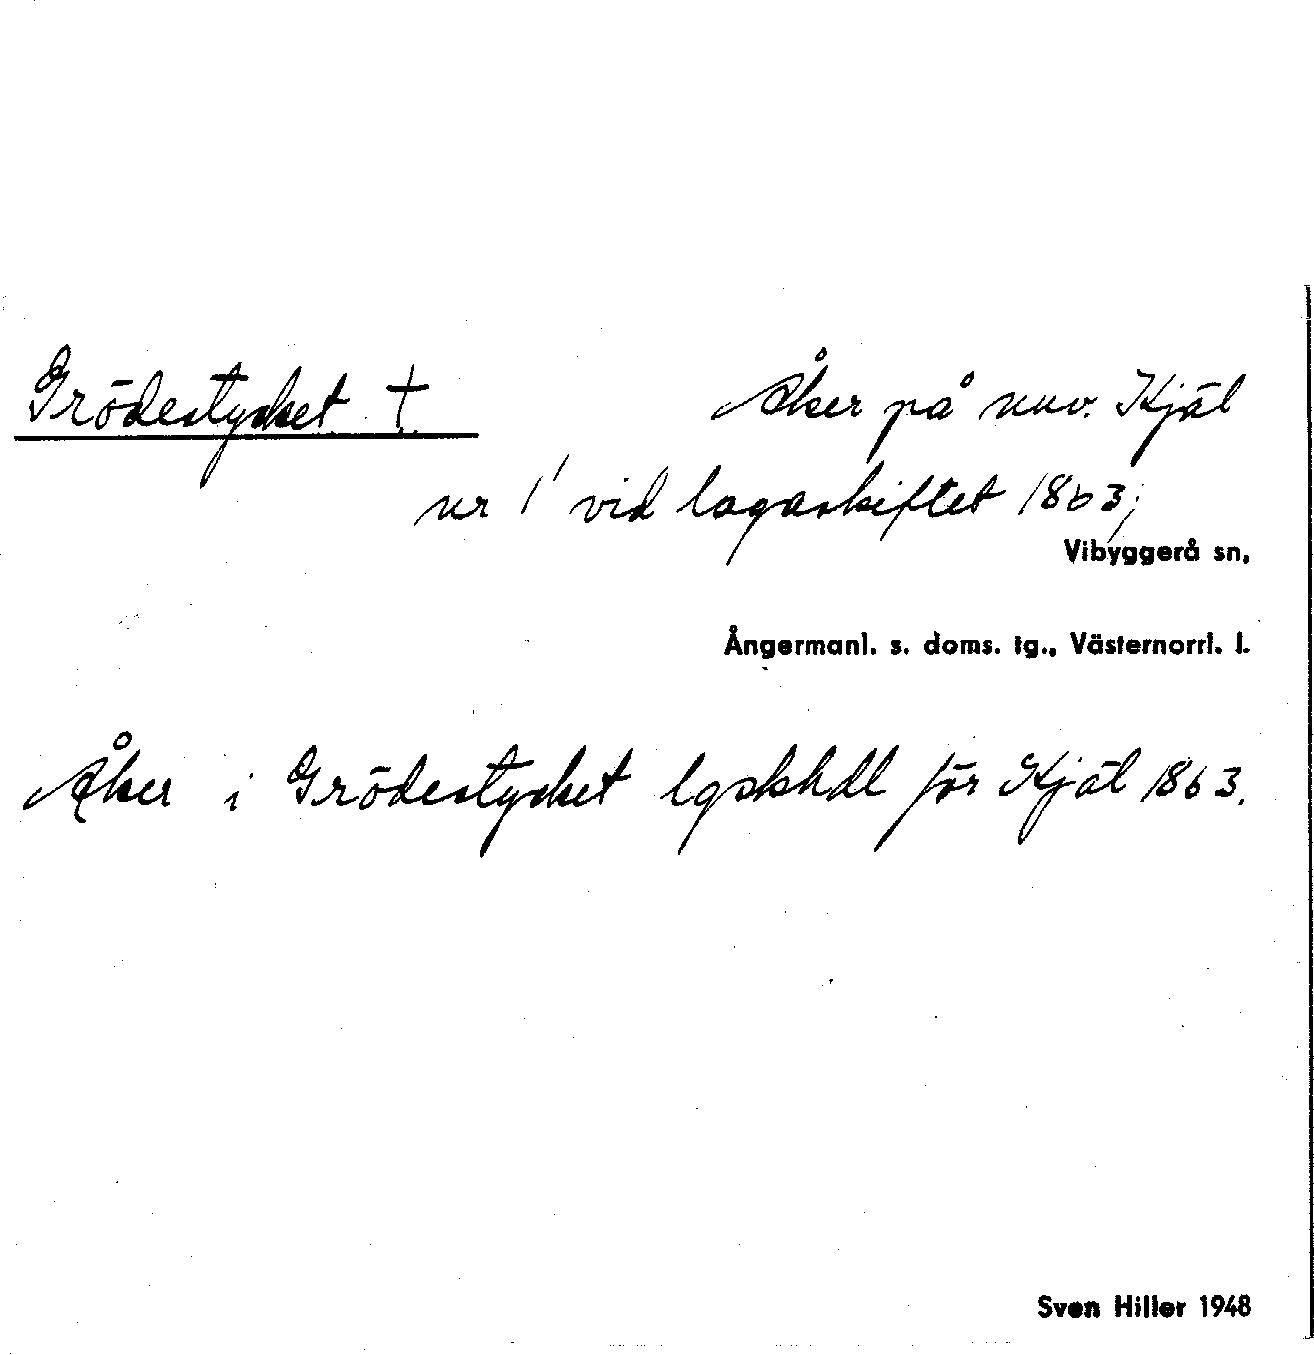 Grödestycket †. Åker på nuv. Kjäl
nr 1' vid lagaskiftet 1863;
Vibyggerå sn,
Ångermanl. s. doms. tg., Västernorrl. l.
Åker i Grödestycket lgskhdl för Kjäl 1863.
Sven Hiller 1948